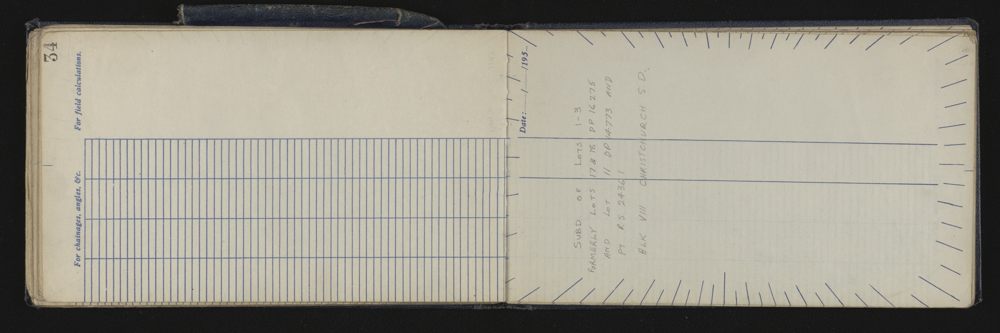 34
For field calculations.
For chainages, angles, &c.
Date: / /195
SUBD OF LOTS 1-3
FORMERLY LOTS 17 & 18 DP 16275
AND LOT 11 DP 14773 AND
PT RS 24361
BLK VIII CHRISTCHURCH S D.